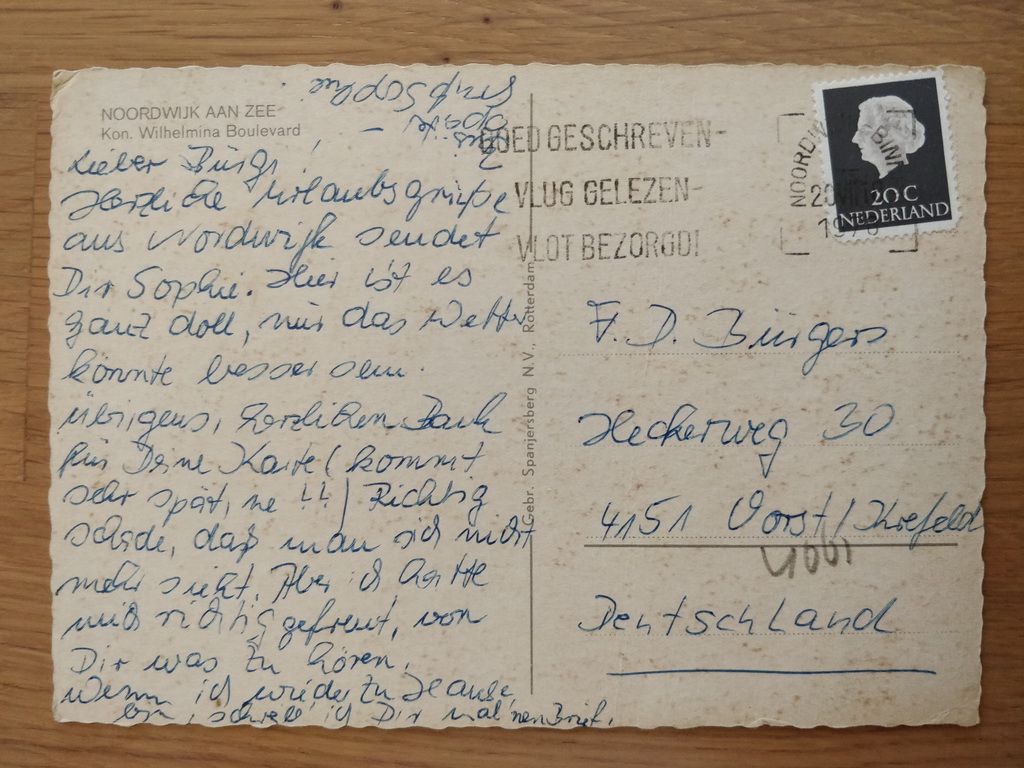 NOORDWIJK AAN ZEE
Kon. Wilhelmina Boulevard
Lieber Bürgi!
Herzliche Urlaubsgrüße
aus Nordwijk sendet
Dir Sophie. Hier ist es
ganz doll, nur das Wetter
könnte besser sein.
Übrigens, herzlichen Dank
für Deine Karte (kommt
sehr spät, ne!!) Richtig
schade, daß man sich nicht
mehr sieht. Aber ich hatte
mich richtig gefreut, von
Dir was zu hören.
Wenn ich wieder zu Hause
bin, schreib ich Dir mal 'nen Brief.
Bis
später
Gruß Sophie
Gebr. Spanjersberg N.V., Rotterdam
GOED GESCHREVEN-
VLUG GELEZEN-
VLOT BEZORGD!
20 C
NEDERLAND
F. D. Bürgers
Heckerweg 30
4151 Vorst/Krefeld
Deutschland